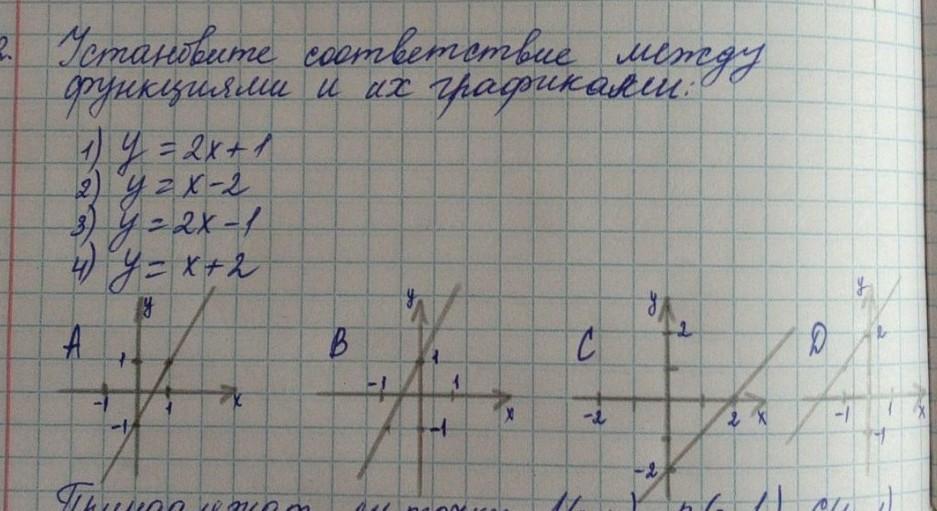 2. Установите соответствие между
функциями и их графиками:
1) y = 2x+1
2) y = x-2
3) y = 2x-1
4) y = x+2
A y 1 -1 1 x -1
B y 1 -1 1 x -1
C y 2 -2 2 x -2
D y 2 -1 1 x -1